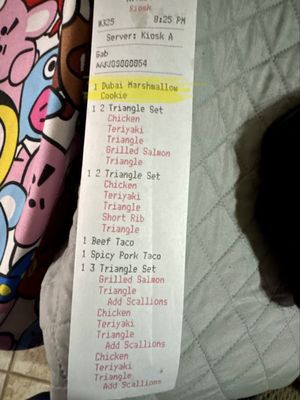 Kiosk
#325 8:25 PM
Server: Kiosk A
Gab
1 Dubai Marshmallow
Cookie
1 2 Triangle Set
Chicken
Teriyaki
Triangle
Grilled Salmon
Triangle
1 2 Triangle Set
Chicken
Teriyaki
Triangle
Short Rib
Triangle
1 Beef Taco
1 Spicy Pork Taco
1 3 Triangle Set
Grilled Salmon
Triangle
Add Scallions
Chicken
Teriyaki
Triangle
Add Scallions
Chicken
Teriyaki
Triangle
Add Scallions